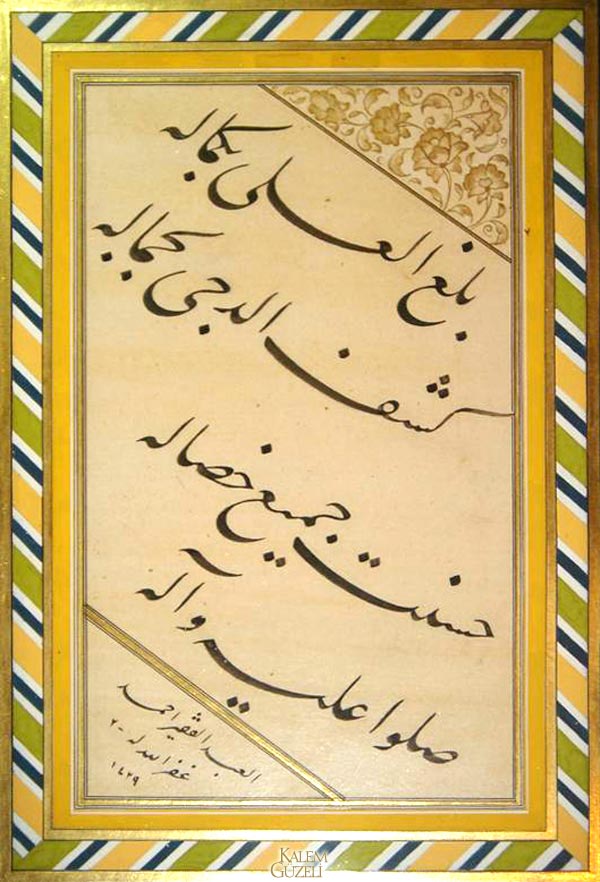 بلغ العلى بكماله
كشف الدجى بجماله
حسنت جميع خصاله
صلوا عليه وآله
العبد الفقير احمد
غفر الله له
١٤٢٩
KALEM
GÜZELİ